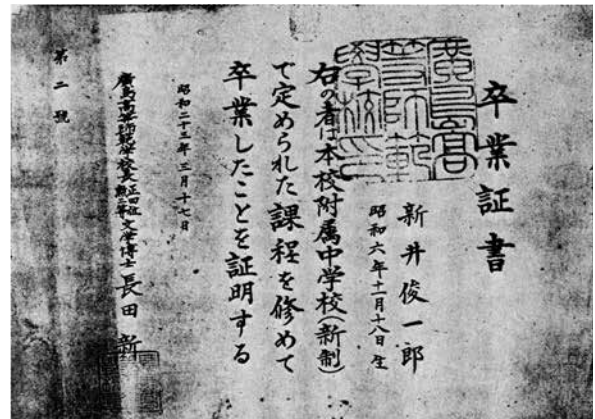 卒業証書
新井俊一郎
昭和六年十一月十八日生
右の者は本校附属中学校(新制)
で定められた課程を修めて
卒業したことを証明する
昭和二十三年三月十七日
廣島高等師範学校長正四位勲二等文学博士長田新
第二號
廣島高
等師範
學校印